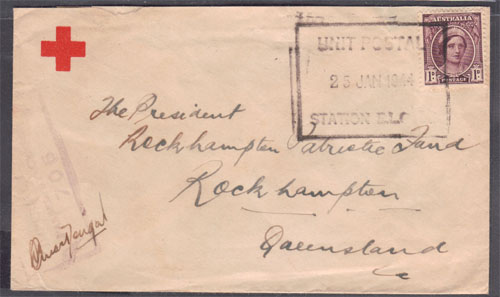 AUSTRALIA
1D POSTAGE 1D
UNIT POSTAL
25 JAN 1944
STATION
The President
Rockhampton Patriotic Fund
Rockhampton
Queensland